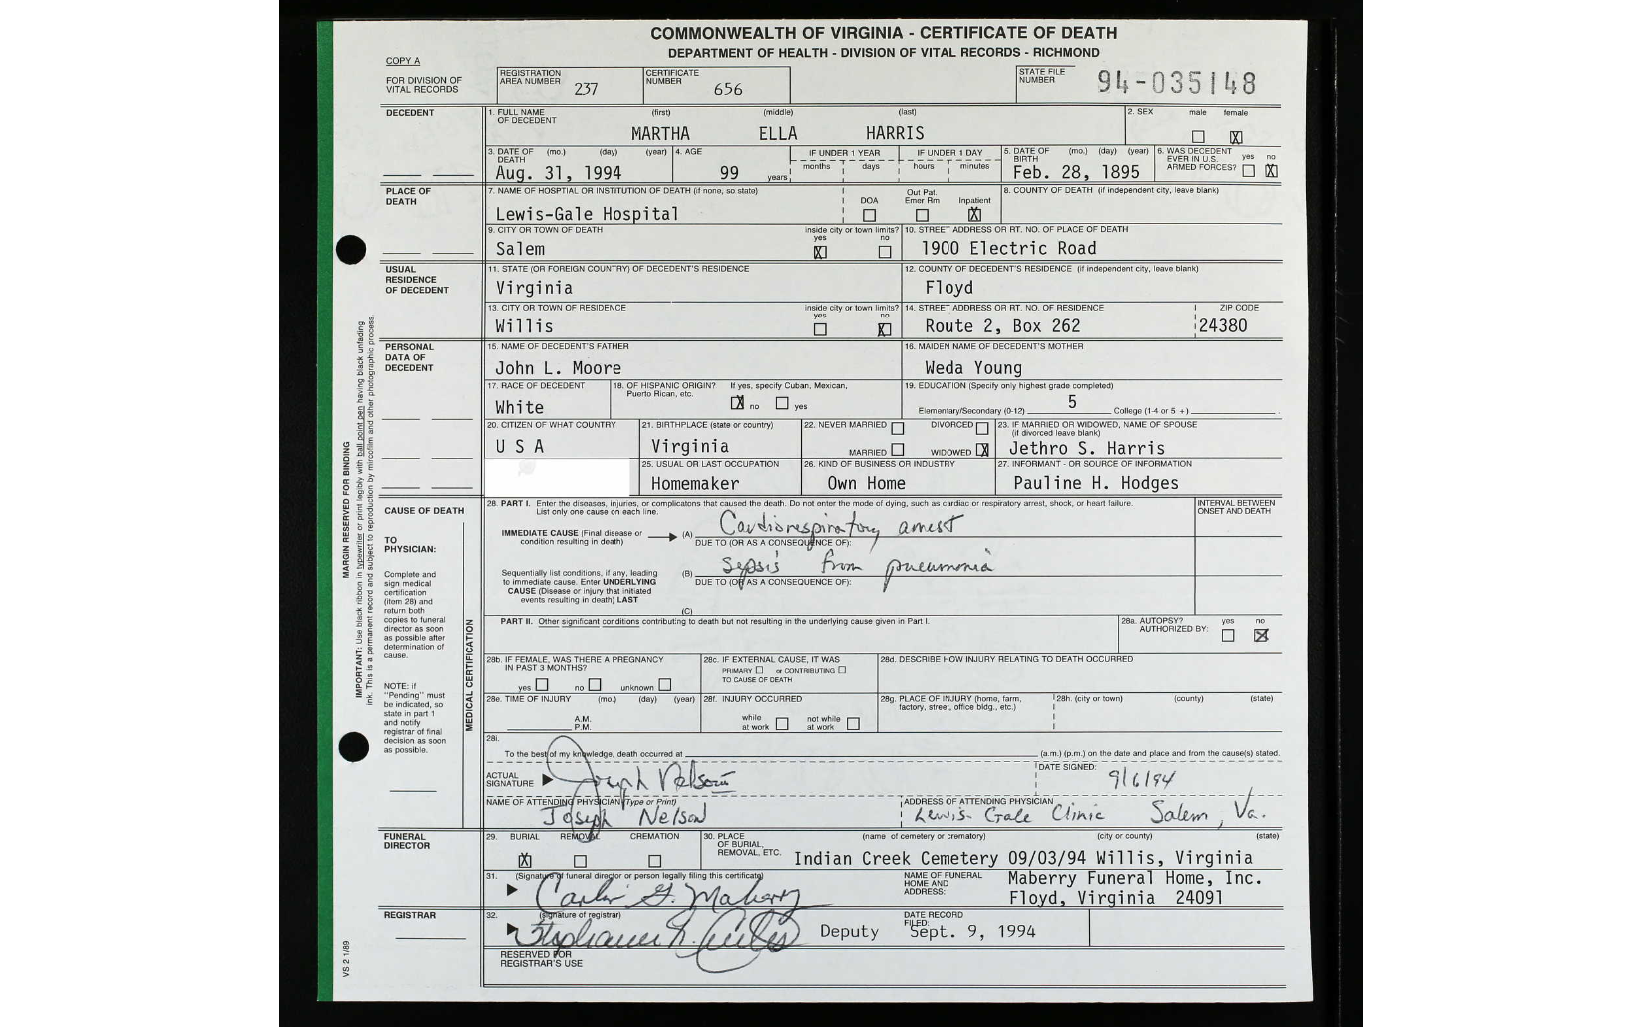 COMMONWEALTH OF VIRGINIA - CERTIFICATE OF DEATH
DEPARTMENT OF HEALTH - DIVISION OF VITAL RECORDS - RICHMOND
COPY A
FOR DIVISION OF VITAL RECORDS
REGISTRATION AREA NUMBER 237
CERTIFICATE NUMBER 656
STATE FILE NUMBER 94-035148
DECEDENT
1. FULL NAME OF DECEDENT (first) (middle) (last)
MARTHA ELLA HARRIS
2. SEX male female X
3. DATE OF DEATH (mo.) (day) (year)
Aug. 31, 1994
4. AGE 99 years
IF UNDER 1 YEAR months days
IF UNDER 1 DAY hours minutes
5. DATE OF BIRTH (mo.) (day) (year)
Feb. 28, 1895
6. WAS DECEDENT EVER IN U.S. ARMED FORCES? yes no X
PLACE OF DEATH
7. NAME OF HOSPTIAL OR INSTITUTION OF DEATH (if none, so state)
Lewis-Gale Hospital
DOA Out Pat. Emer Rm Inpatient X
8. COUNTY OF DEATH (if independent city, leave blank)
9. CITY OR TOWN OF DEATH
Salem
inside city or town limits? yes X no
10. STREET ADDRESS OR RT. NO. OF PLACE OF DEATH
1900 Electric Road
USUAL RESIDENCE OF DECEDENT
11. STATE (OR FOREIGN COUNTRY) OF DECEDENT'S RESIDENCE
Virginia
12. COUNTY OF DECEDENT'S RESIDENCE (if independent city, leave blank)
Floyd
13. CITY OR TOWN OF RESIDENCE
Willis
inside city or town limits? yes no X
14. STREET ADDRESS OR RT. NO. OF RESIDENCE
Route 2, Box 262
ZIP CODE 24380
PERSONAL DATA OF DECEDENT
15. NAME OF DECEDENT'S FATHER
John L. Moore
16. MAIDEN NAME OF DECEDENT'S MOTHER
Weda Young
17. RACE OF DECEDENT
White
18. OF HISPANIC ORIGIN? If yes, specify Cuban, Mexican, Puerto Rican, etc.
X no yes
19. EDUCATION (Specify only highest grade completed)
Elementary/Secondary (0-12) 5 College (1-4 or 5 +)
20. CITIZEN OF WHAT COUNTRY
U S A
21. BIRTHPLACE (state or country)
Virginia
22. NEVER MARRIED DIVORCED
MARRIED WIDOWED X
23. IF MARRIED OR WIDOWED, NAME OF SPOUSE (if divorced leave blank)
Jethro S. Harris
25. USUAL OR LAST OCCUPATION
Homemaker
26. KIND OF BUSINESS OR INDUSTRY
Own Home
27. INFORMANT - OR SOURCE OF INFORMATION
Pauline H. Hodges
CAUSE OF DEATH
TO PHYSICIAN:
Complete and sign medical certification (item 28) and return both copies to funeral director as soon as possible after determination of cause.
NOTE: if "Pending" must be indicated, so state in part 1 and notify registrar of final decision as soon as possible.
MEDICAL CERTIFICATION
28. PART I. Enter the diseases, injuries, or complicatons that caused the death. Do not enter the mode of dying, such as cardiac or respiratory arrest, shock, or heart failure.
List only one cause on each line.
INTERVAL BETWEEN ONSET AND DEATH
IMMEDIATE CAUSE (Final disease or condition resulting in death)
(A) Cardiorespiratory arrest
DUE TO (OR AS A CONSEQUENCE OF):
Sequentially list conditions, if any, leading to immediate cause. Enter UNDERLYING CAUSE (Disease or injury that initiated events resulting in death) LAST
(B) Sepsis from pneumonia
DUE TO (OR AS A CONSEQUENCE OF):
(C)
PART II. Other significant conditions contributing to death but not resulting in the underlying cause given in Part I.
28a. AUTOPSY? AUTHORIZED BY: yes no X
28b. IF FEMALE, WAS THERE A PREGNANCY IN PAST 3 MONTHS?
yes no unknown
28c. IF EXTERNAL CAUSE, IT WAS
PRIMARY or CONTRIBUTING TO CAUSE OF DEATH
28d. DESCRIBE HOW INJURY RELATING TO DEATH OCCURRED
28e. TIME OF INJURY (mo.) (day) (year)
A.M.
P.M.
28f. INJURY OCCURRED
while at work not while at work
28g. PLACE OF INJURY (home, farm, factory, street, office bldg., etc.)
28h. (city or town) (county) (state)
28i.
To the best of my knowledge, death occurred at (a.m.) (p.m.) on the date and place and from the cause(s) stated.
ACTUAL SIGNATURE Joseph Nelson
DATE SIGNED: 9/6/94
NAME OF ATTENDING PHYSICIAN (Type or Print)
Joseph Nelson
ADDRESS OF ATTENDING PHYSICIAN
Lewis-Gale Clinic Salem, Va.
FUNERAL DIRECTOR
29. BURIAL REMOVAL CREMATION
X
30. PLACE OF BURIAL, REMOVAL, ETC. (name of cemetery or crematory) (city or county) (state)
Indian Creek Cemetery 09/03/94 Willis, Virginia
31. (Signature of funeral director or person legally filing this certificate)
NAME OF FUNERAL HOME AND ADDRESS:
Maberry Funeral Home, Inc.
Floyd, Virginia 24091
REGISTRAR
32. (signature of registrar)
Deputy
DATE RECORD FILED:
Sept. 9, 1994
RESERVED FOR REGISTRAR'S USE
VS 2 1/89
MARGIN RESERVED FOR BINDING
IMPORTANT: Use black ribbon in typewriter or print legibly with ball point pen having black unfading
ink. This is a permanent record and subject to reproduction by mircofilm and other photographic process.